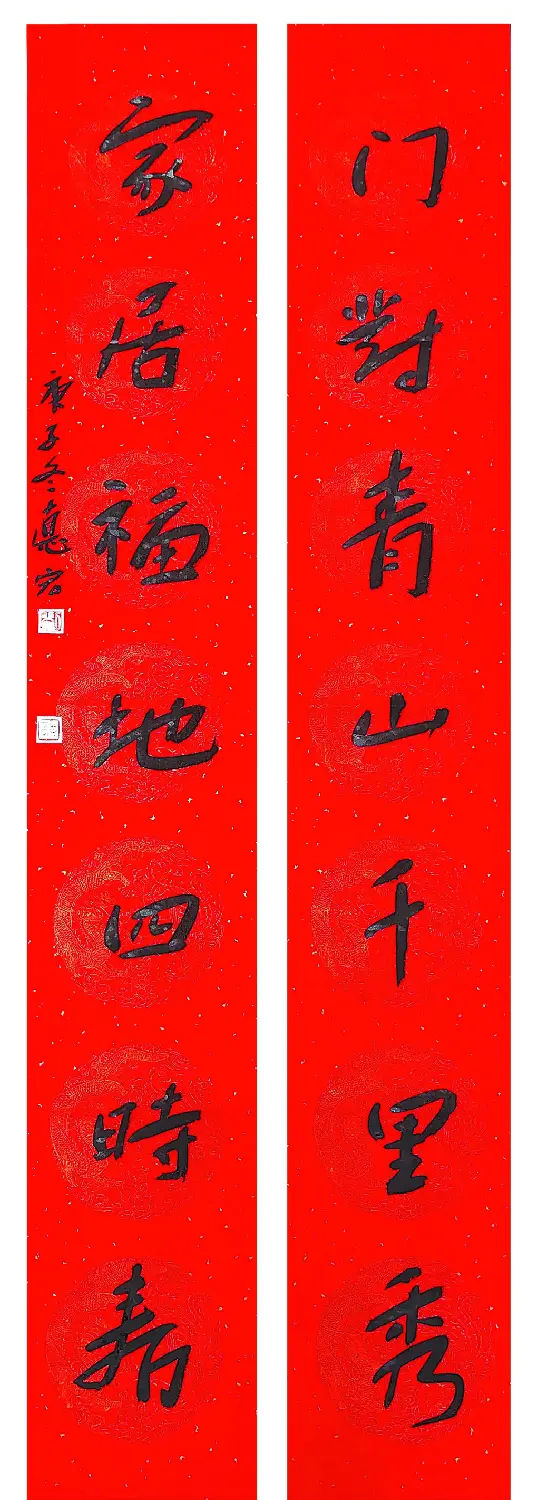 门對青山千里秀
家居福地四時春
庚子冬